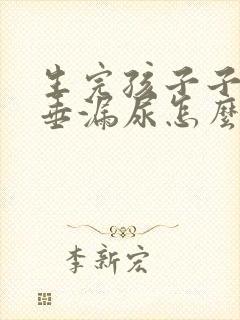 生完孩子子
垂漏尿怎麼
李新宏